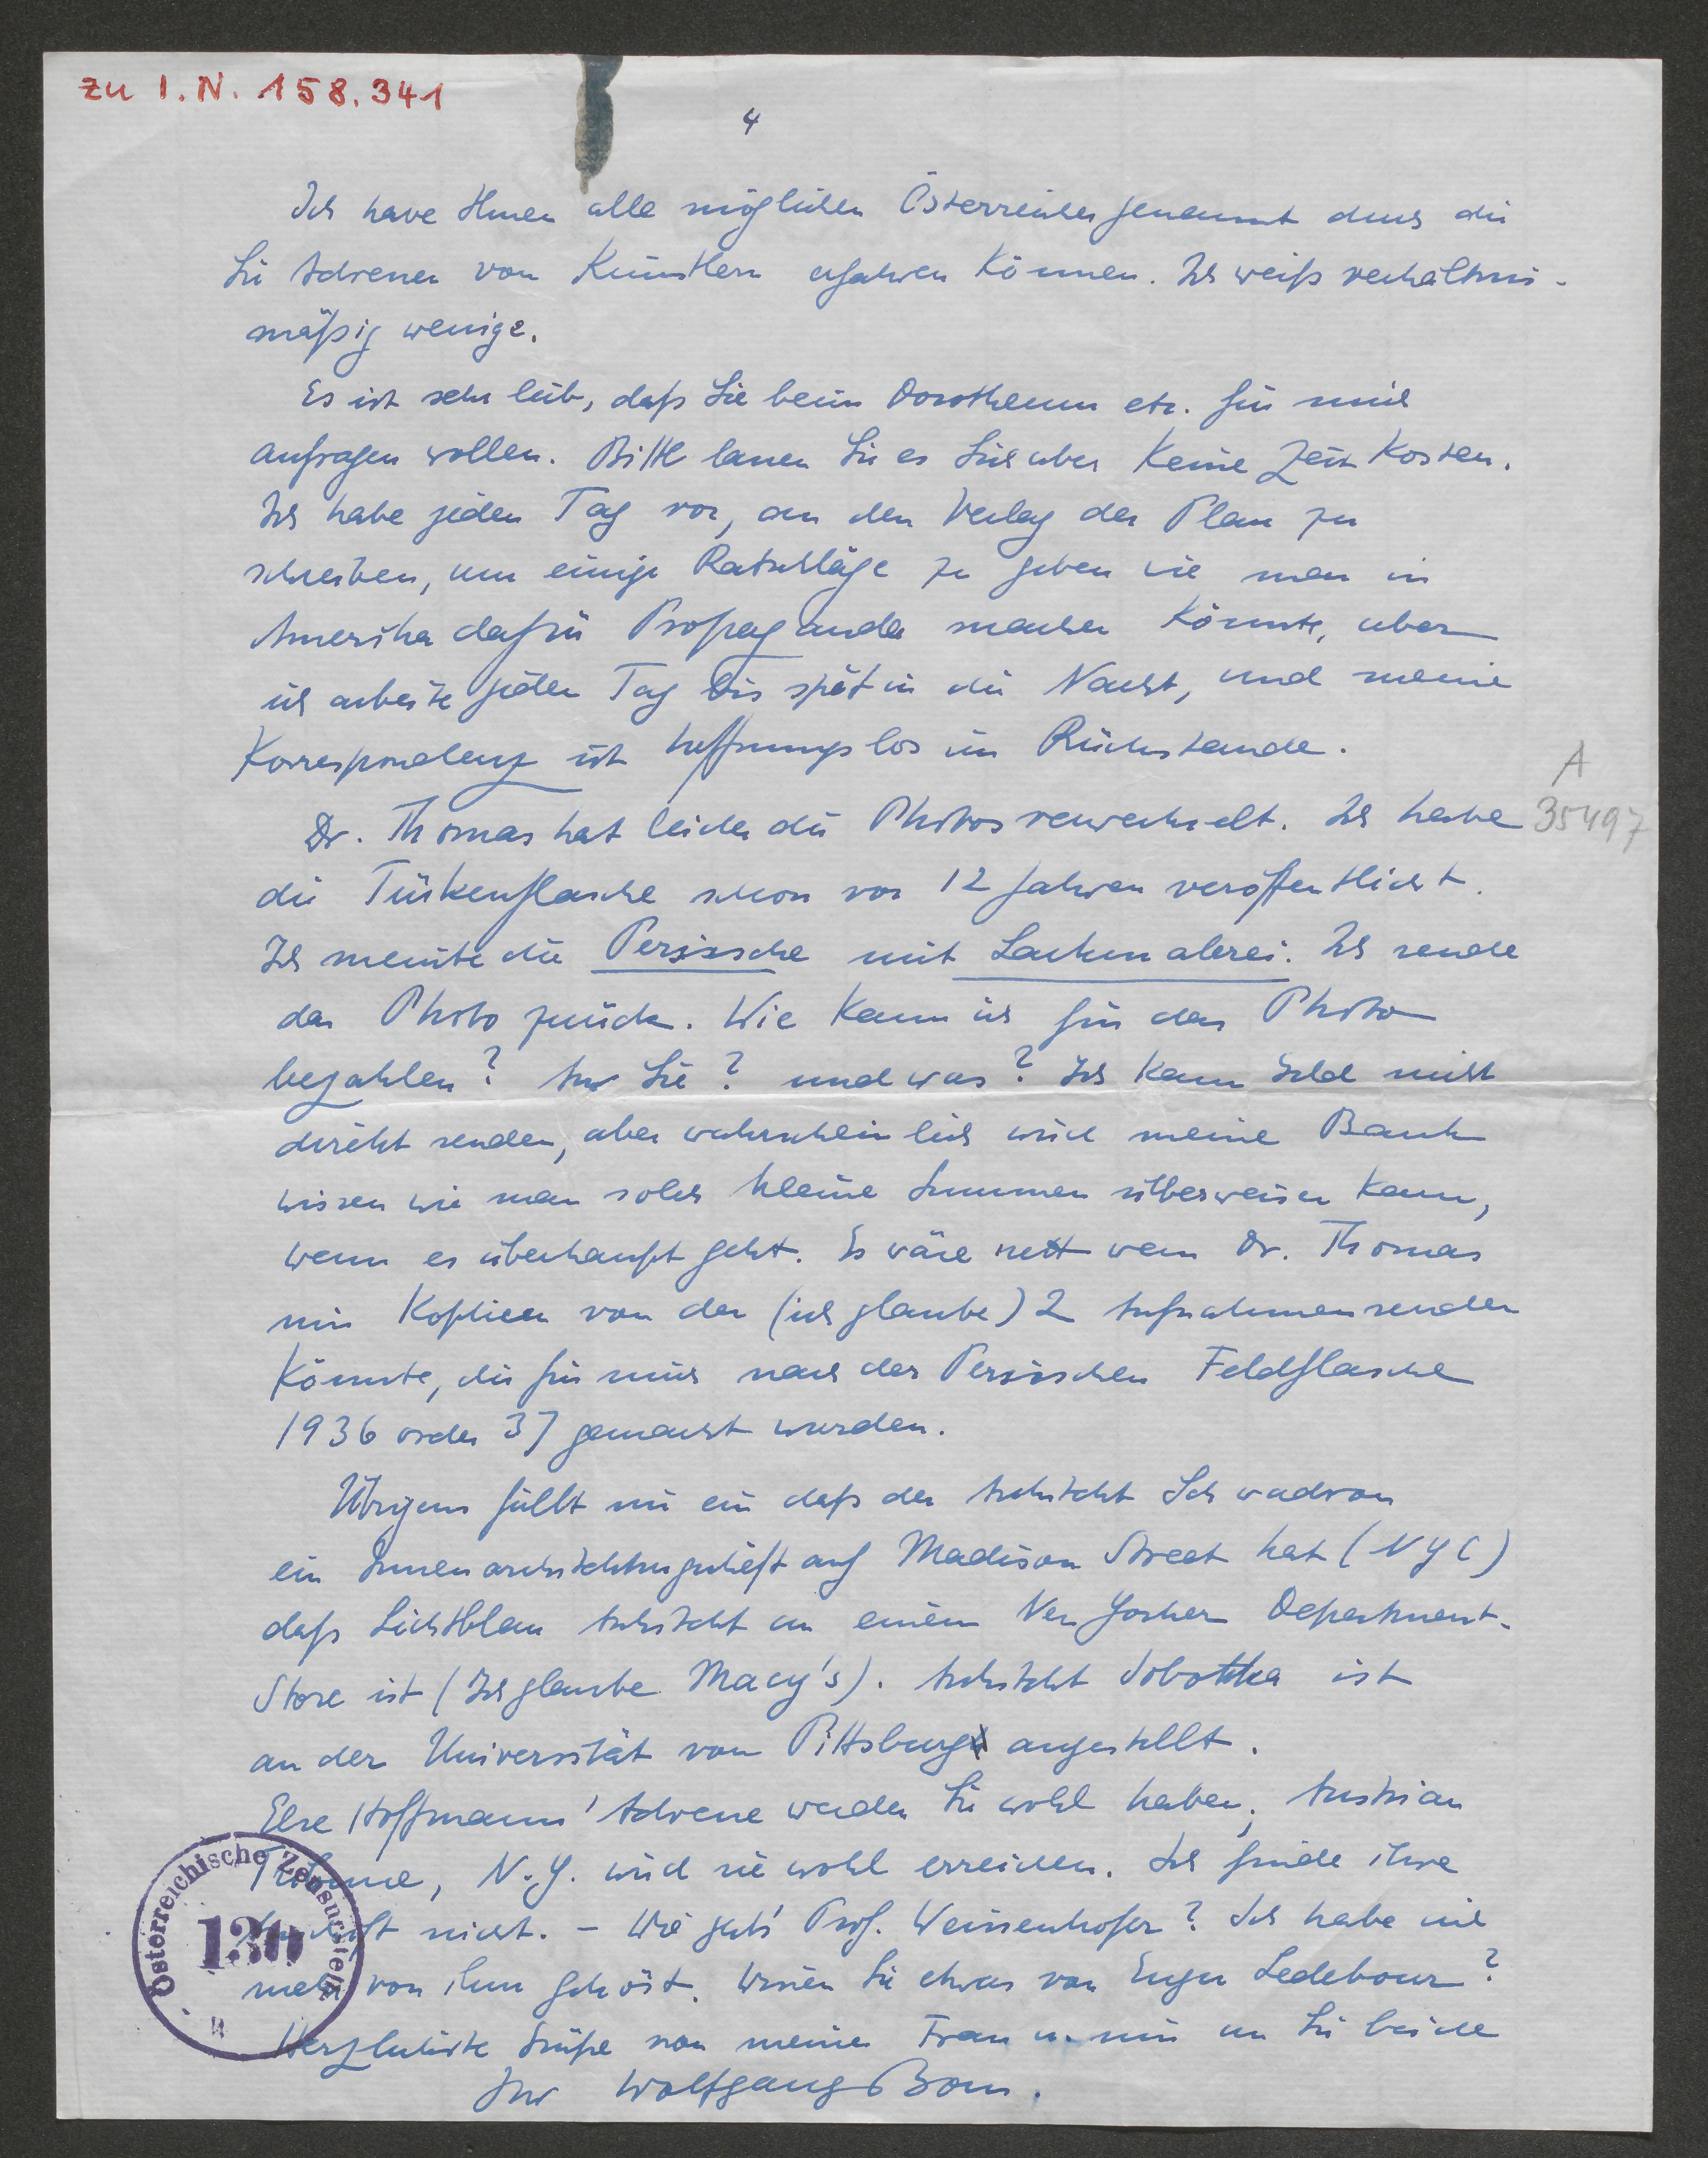 zu I.N. 158.341
4
Ich habe Ihnen alle möglichen Österreicher genannt durch die
Sie Adressen von Künstlern erfahren können. Ich weiß verhältnis-
mäßig wenige.
Es ist sehr lieb, daß Sie beim Dorotheum etc. für mich
anfragen wollen. Bitte lassen Sie es Sich aber keine Zeit kosten.
Ich habe jeden Tag vor, an den Verlag der Plan zu
schreiben, um einige Ratschläge zu geben wie man in
Amerika dafür Propaganda machen könnte, aber
ich arbeite jeden Tag bis spät in die Nacht, und meine
Korrespondenz ist hoffnungslos im Rückstande.
Dr. Thomas hat leider die Photos verwechselt. Ich habe
A
35497
die Türkenflasche schon vor 12 Jahren veröffentlicht.
Ich meinte die Persische mit Lackmalerei. Ich sende
das Photo zurück. Wie kann ich für das Photo
bezahlen? An Sie? und was? Ich kann Geld nicht
direkt senden, aber wahrscheinlich wird meine Bank
wissen wie man solch kleine Summen überweisen kann,
wenn es überhaupt geht. Es wäre nett wenn Dr. Thomas
mir Kopieen von den (ich glaube) 2 Aufnahmen senden
könnte, die für mich nach der Persischen Feldflasche
1936 oder 37 gemacht wurden.
Übrigens fällt mir ein daß der Architekt Schwadron
ein Innenarchitekturgeschäft auf Madison Street hat (NYC)
daß Lichtblau Architekt an einem New Yorker Department-
Store ist (Ich glaube Macy's). Architekt Sobottka ist
an der Universität von Pittsburg angestellt.
Else Hoffmanns' Adresse werden Sie wohl haben; Austrian
Tribune, N.Y. wird sie wohl erreichen. Ich finde ihre
Anschrift nicht. - Wie gehts' Prof. Weissenhofer? Ich habe nie
mehr von ihm gehört. Wissen Sie etwas von Eugen Ledebour?
Herzlichste Grüße von meiner Frau u. mir an Sie beide
Ihr Wolfgang Born.
Österreichische Zensurstelle
130